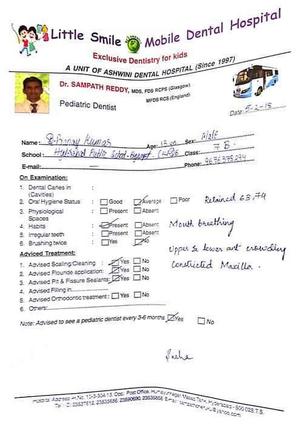 Little Smile Mobile Dental Hospital
Exclusive Dentistry for kids
A UNIT OF ASHWINI DENTAL HOSPITAL (Since 1997)
Dr. SAMPATH REDDY, MDS, FDS RCPS (Glasgow)
MFDS RCS (England)
Pediatric Dentist
Date:
Name: Kumar Age: Sex: Male
School: Hyderabad Public School Class: 7 B.
E-mail: Phone:
On Examination:
1. Dental Caries in :
(Cavities)
2. Oral Hygiene Status : Good Average Poor Retained 63,74
3. Physiological : Present Absent
Spaces
4. Habits : Present Absent Mouth breathing
5. Irregular teeth : Present Absent
6. Brushing twice : Yes No Upper & lower ant crowding
Constricted Maxilla.
Adviced Treatment:
1. Advised Scaling/Cleaning : Yes No
2. Advised Flouride application: Yes No
3. Advised Pit & Fissure Sealants: Yes No
4. Advised Filling in
5. Advised Orthodontic treatment : Yes No
6. Others:
Note: Advised to see a pediatric dentist every 3-6 months Yes No